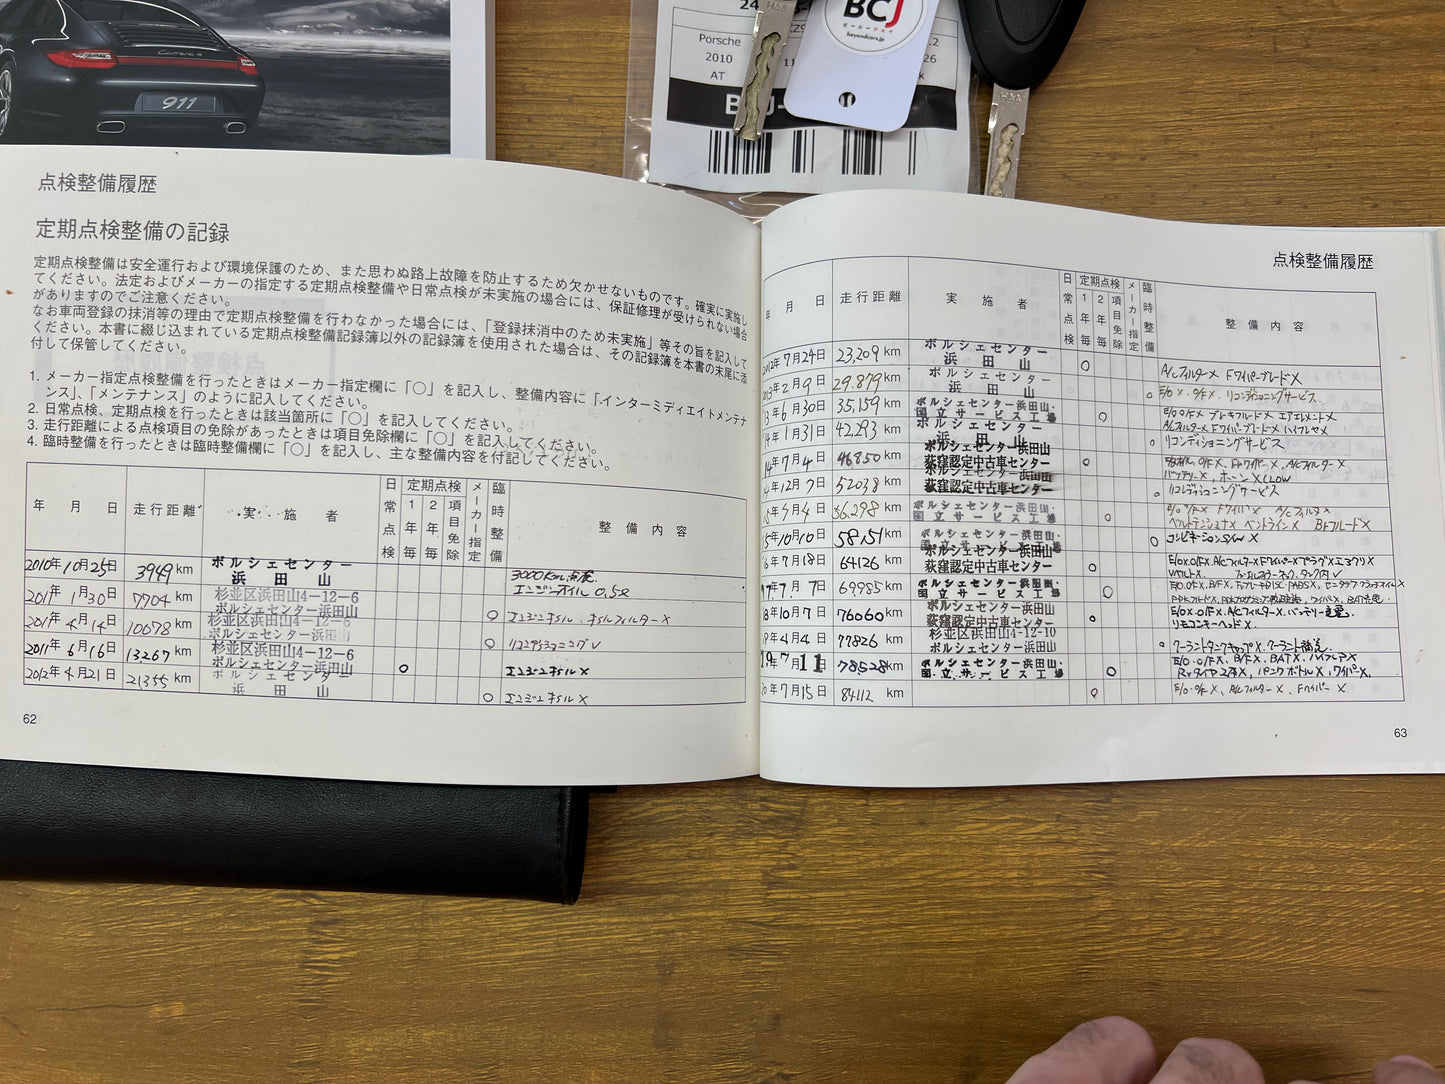 Carrera 4
911
BCJ
ビーシージェイ
beyondcars.jp
H&A
Porsche
2010
AT
H&A
点検整備履歴
定期点検整備の記録
定期点検整備は安全運行および環境保護のため、また思わぬ路上故障を防止するため欠かせないものです。確実に実施し
てください。法定およびメーカーの指定する定期点検整備や日常点検が未実施の場合には、保証修理が受けられない場合
がありますのでご注意ください。
なお車両登録の抹消等の理由で定期点検整備を行わなかった場合には、「登録抹消中のため未実施」等その旨を記入して
ください。本書に綴じ込まれている定期点検整備記録簿以外の記録簿を使用された場合は、その記録簿を本書の末尾に添
付して保管してください。
1. メーカー指定点検整備を行ったときはメーカー指定欄に「○」を記入し、整備内容に「インターミディエイトメンテナ
ンス」、「メンテナンス」のように記入してください。
2. 日常点検、定期点検を行ったときは該当箇所に「○」を記入してください。
3. 走行距離による点検項目の免除があったときは項目免除欄に「○」を記入してください。
4. 臨時整備を行ったときは臨時整備欄に「○」を記入し、主な整備内容を付記してください。
年 月 日 走行距離 実施者 日常点検 定期点検 1年毎 2年毎 項目免除 メーカー指定 臨時整備 整備内容
2010年10月25日 3949 km ポルシェセンター 浜田山 3000Km点検 エンジンオイル 0.5ℓ
2011年1月30日 7704 km 杉並区浜田山4-12-6 ポルシェセンター浜田山 ○ エンジンオイル、オイルフィルターX
2011年4月14日 10678 km 杉並区浜田山4-12-6 ポルシェセンター浜田山 ○
2011年6月16日 13267 km 杉並区浜田山4-12-6 ポルシェセンター浜田山 ○ エンジンオイルX
2012年4月21日 21355 km ポルシェセンター 浜田山 ○ エンジンオイルX
62
点検整備履歴
年 月 日 走行距離 実施者 日常点検 定期点検 1年毎 2年毎 項目免除 メーカー指定 臨時整備 整備内容
2012年7月24日 23,209 km ポルシェセンター 浜田山 ○ A/CフィルターX FワイパーブレードX
2013年2月9日 29,879 km ポルシェセンター 浜田山 ○ E/O X O/F X リコンディショニングサービス
3年6月30日 35,159 km ポルシェセンター浜田山・国立サービス工場 ○ E/O O/F X ブレキフルードX エアエレメントX
A/CフィルターX FワイパーブレードX
14年1月31日 42,293 km ポルシェセンター 浜田山 ○ リコンディショニングサービス
14年7月4日 46850 km ポルシェセンター浜田山 荻窪認定中古車センター ○ O/F X、Frワイパー X、A/Cフィルター X
バッテリーX、ホーンX(LOW
14年12月7日 52038 km ポルシェセンター浜田山 荻窪認定中古車センター ○ リコンディショニングサービス
5年4月4日 56,298 km ポルシェセンター浜田山・国立サービス工場 ○
5年10月10日 58151 km ポルシェセンター浜田山・国立サービス工場 ○ コンビネーションSW X
6年7月18日 64126 km ポルシェセンター浜田山 荻窪認定中古車センター ○ E/OX.O/FX、A/CフィルターX FワイパーX プラグX
7年7月7日 69985 km ポルシェセンター浜田山・国立サービス工場 ○
8年10月7日 76060 km ポルシェセンター浜田山 荻窪認定中古車センター ○ E/O X.O/F X、A/CフィルターX、バッテリー
リモコンキーヘッドX.
19年4月4日 77826 km 杉並区浜田山4-12-10 ポルシェセンター浜田山 ○ クーラントタンクキャップX、クーラント補充
19年7月11日 78,528 km ポルシェセンター浜田山・国立サービス工場 ○ E/O・O/FX、B/FX、BATX、
RrタイヤX、パンクボトルX、ワイパーX、
20年7月15日 84112 km ○ E/O・O/F X、A/CフィルターX、Fワイパー X
63